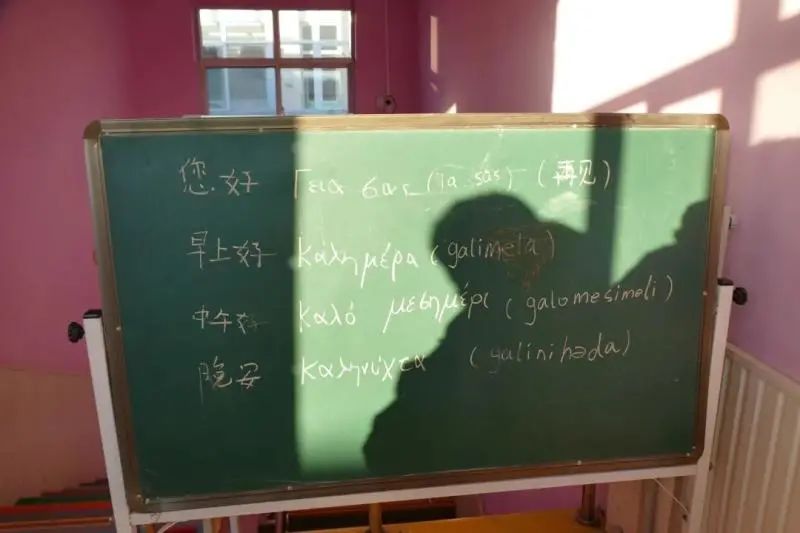 您好 Γεια σας (Ya sas) (再见)
早上好 Καλημέρα (galimela)
中午好 Καλό μεσημέρι (galomesimeli)
晚安 Καληνύχτα (galinihəda)